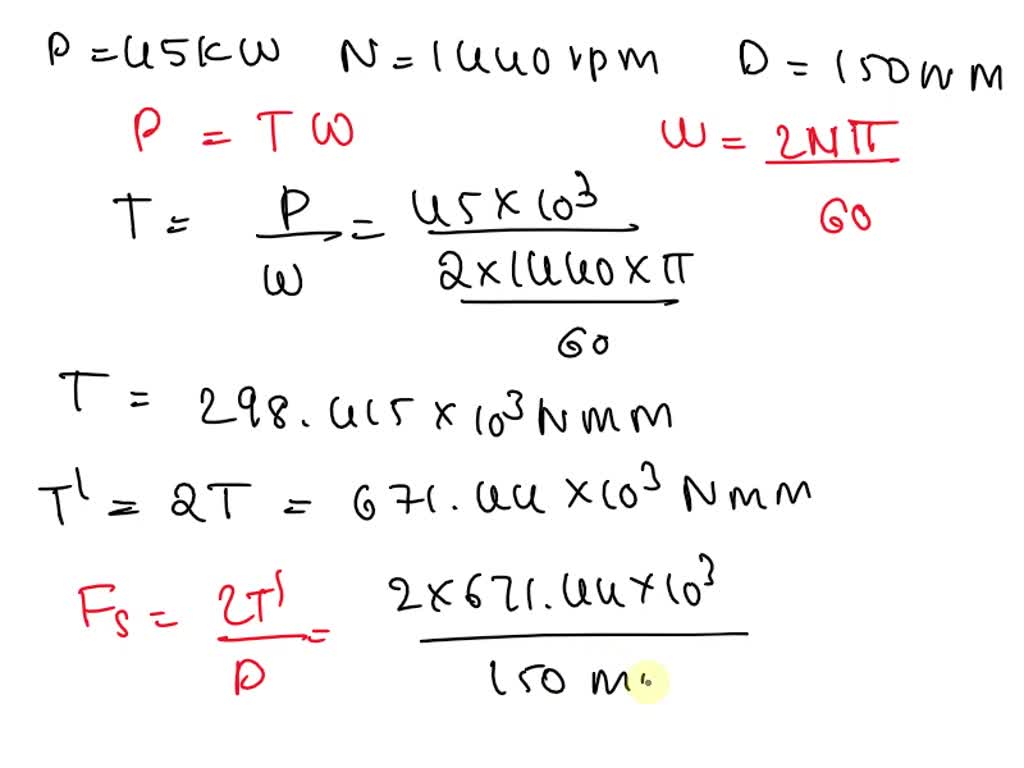 P = 45KW N = 1440 rpm D = 150 mm
P = Tω ω = 2Nπ / 60
T = P / ω = 45 × 10³ / (2 × 1440 × π / 60)
T = 298.415 × 10³ Nmm
T' = 2T = 671.44 × 10³ Nmm
Fs = 2T' / D = 2 × 671.44 × 10³ / 150 m